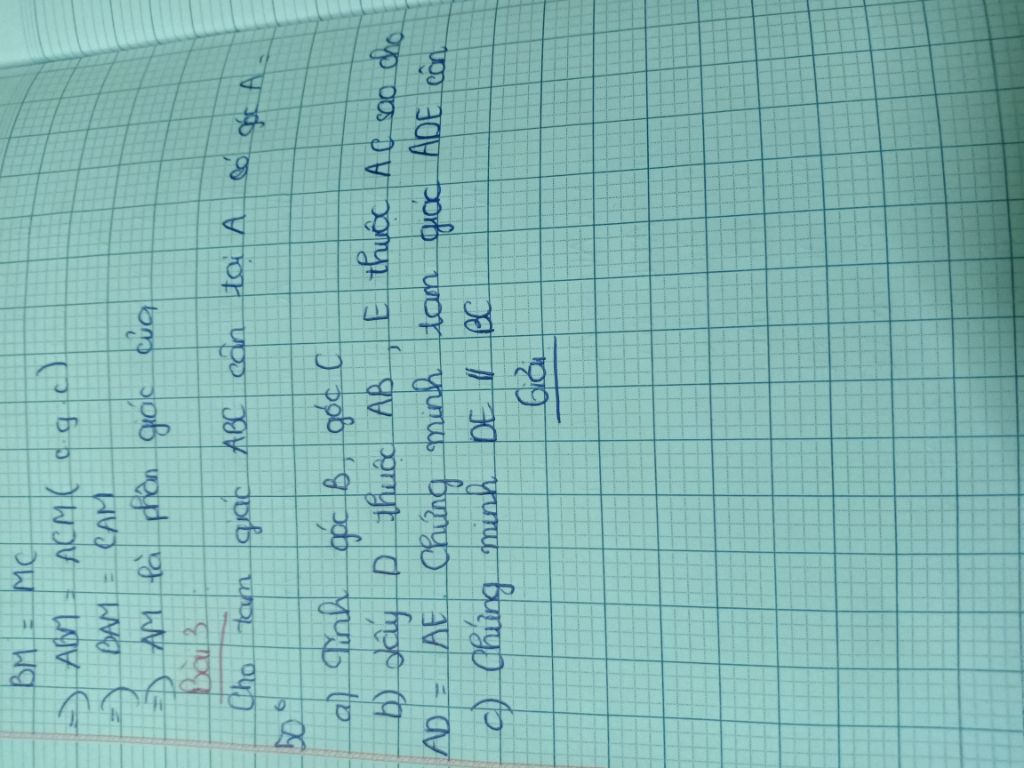 BM = MC
=) ABM = ACM ( c g c )
=) BAM = CAM
=) AM là phân giác của
Bài 3
Cho tam giác ABC cân tại A có góc A =
50°
a) Tính góc B, góc C
b) Lấy D thuộc AB, E thuộc AC sao cho
AD = AE. Chứng minh tam giác ADE cân
c) Chứng minh DE // BC
Giải